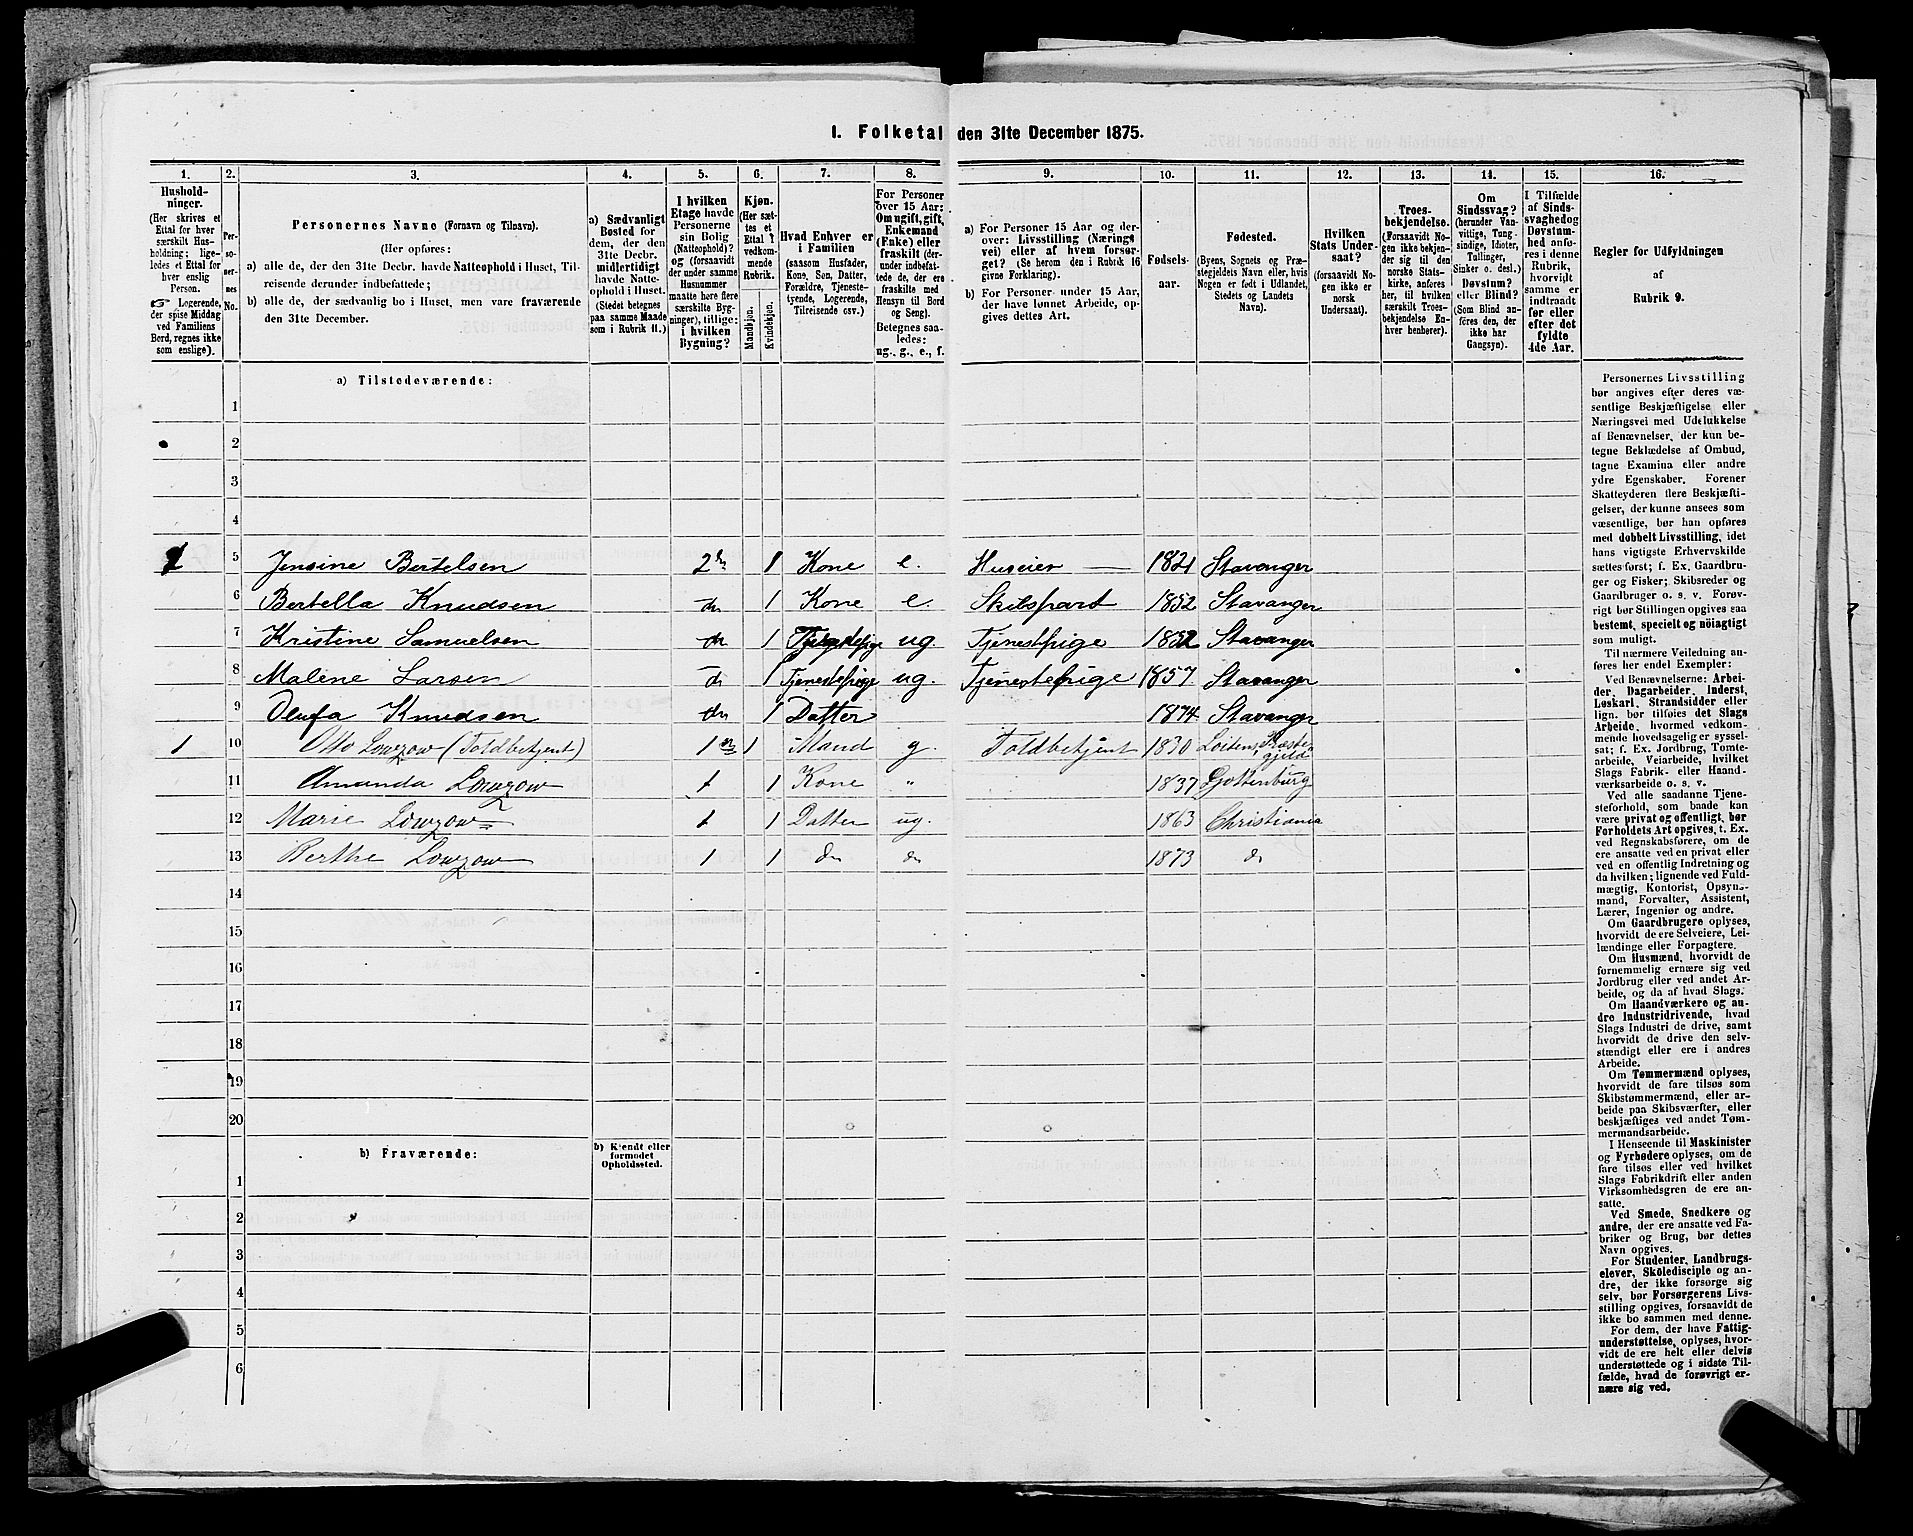 I. Folketal den 31te December 1875.
1. 2. 3. 4. 5. 6. 7. 8. 9. 10. 11. 12. 13. 14. 15. 16.
Hushold-
ninger.
(Her skrives et
Ettal for hver
særskilt Hus-
holdning; lige-
ledes et Ettal for
hver enslig
Person.
☞ Logerende,
der spise Middag
ved Familiens
Bord, regnes ikke
som enslige).
Per-
so-
ner-
nes
No.
Personernes Navne (Fornavn og Tilnavn).
(Her opføres:
a) alle de, der den 31te Decbr. havde Natteophold i Huset, Til-
reisende derunder indbefattede;
b) alle de, der sædvanlig bo i Huset, men vare fraværende
den 31te December.
a) Sædvanligt
Bosted for
dem, der den
31te Decbr.
midlertidigt
havde Natte-
ophold i Huset.
(Stedet betegnes
paa samme Maade
som i Rubrik 11.)
I hvilken
Etage havde
Personerne
sin Bolig
(Natteophold)?
og (forsaavidt
der under samme
Husnummer
maatte høre flere
særskilte Byg-
ninger), tillige:
i hvilken
Bygning?
Kjøn.
(Her sæt-
tes et
Ettal i
vedkom-
mende
Rubrik.
Mandkjøn.
Kvindekjøn.
Hvad Enhver er
i Familien
(saasom Husfader,
Kone, Søn, Datter,
Forældre, Tjeneste-
tyende, Logerende,
Tilreisende osv.)
For Personer
over 15 Aar:
Om ugift, gift,
Enkemand
(Enke) eller
fraskilt (der-
under indbefat-
tede de, der ere
fraskilte med
Hensyn til Bord
og Seng).
Betegnes saa-
ledes:
ug., g., e., f.
a) For Personer 15 Aar og der-
over: Livsstilling (Nærings-
vei) eller af hvem forsør-
get? (Se herom den i Rubrik 16
givne Forklaring).
b) For Personer under 15 Aar,
der have lønnet Arbeide, op-
gives dettes Art.
Fødsels-
aar.
Fødested.
(Byens, Sognets og Præ-
stegjeldets Navn eller, hvis
Nogen er født i Udlandet,
Stedets og Landets
Navn).
Hvilken
Stats Under-
saat?
(forsaavidt No-
gen ikke er
norsk
Undersaat).
Troes-
bekjendelse.
(Forsaavidt No-
gen ikke bekjen-
der sig til den
norske Stats-
kirke, anføres
her, til hvilken
særskilt Troes-
bekjendelse En-
hver henhører).
Om
Sindssvag?
(herunder Van-
vittige, Tung-
sindige, Idioter,
Tullinger,
Sinker o. desl.)
Døvstum?
eller Blind?
(Som Blind an-
føres den, der
ikke har
Gangsyn).
I Tilfælde
af Sinds-
svaghed og
Døvstum-
hed anfø-
res i denne
Rubrik,
hvorvidt
samme er
indtraadt
før eller
efter det
fyldte
4de Aar.
Regler for Udfyldningen
af
Rubrik 9.
a) Tilstedeværende:
1
2
3
4
1 5 Jensine Bertelsen 2den 1 Kone e. Huseier 1821 Stavanger
6 Bertella Knudsen do 1 Kone e. Skibspart 1852 Stavanger
7 Kristine Samuelsen do 1 Tjenestepige ug. Tjenestepige Stavanger
8 Malene Larsen do 1 Tjenestepige ug. Tjenestepige 1857 Stavanger
9 Olufa Knudsen do 1 Datter 1874 Stavanger
1 10 Otto Lowzow (Toldbetjent) 1 1 Mand g. Toldbetjent 1830 Loitens Præste-
gjeld
11 Amanda Lowzow 1 1 Kone " 1837 Gottenburg
12 Marie Lowzow 1 1 Datter ug. 1863 Christiania
13 Berthe Lowzow 1 1 do do 1873 do
14
15
16
17
18
19
20
b) Fraværende:
b) Kjendt eller
formodet
Opholdssted.
1
2
3
4
5
6
Personernes Livsstilling
bør angives efter deres væ-
sentlige Beskjæftigelse eller
Næringsvei med Udelukkelse
af Benævnelser, der kun be-
tegne Beklædelse af Ombud,
tagne Examina eller andre
ydre Egenskaber. Forener
Skatteyderen flere Beskjæfti-
gelser, der kunne ansees som
væsentlige, bør han opføres
med dobbelt Livsstilling, idet
hans vigtigste Erhvervskilde
sættes først; f. Ex. Gaardbru-
ger og Fisker; Skibsreder og
Gaardbruger o. s. v. Forøv-
rigt bør Stillingen opgives saa
bestemt, specielt og nöiagtigt
som muligt.
Til nærmere Veiledning an-
føres her endel Exempler:
Ved Benævnelserne: Arbei-
der, Dagarbeider, Inderst,
Løskarl, Strandsidder eller
lign. bør tilføies det Slags
Arbeide, hvormed vedkom-
mende hovedsagelig er syssel-
sat; f. Ex. Jordbrug, Tomte-
arbeide, Veiarbeide, hvilket
Slags Fabrik- eller Haand-
værksarbeide o. s. v.
Ved alle saadanne Tjene-
steforhold, som baade kan
være privat og offentligt, bør
Forholdets Art opgives, t. Ex.
ved Regnskabsførere, om de
ere ansatte ved en privat eller
ved en offentlig Indretning og
da hvilken; lignende ved Fuld-
mægtig, Kontorist, Opsyns-
mand, Forvalter, Assistent,
Lærer, Ingeniør og andre.
Om Gaardbrugere oplyses,
hvorvidt de ere Selveiere, Lei-
lændinge eller Forpagtere.
Om Husmænd, hvorvidt de
fornemmelig ernære sig ved
Jordbrug eller ved andet Ar-
beide, og da af hvad Slags.
Om Haandværkere og an-
dre Industridrivende, hvad
Slags Industri de drive, samt
hvorvidt de drive den selv-
stændigt eller ere i andres
Arbeide.
Om Tømmermænd oplyses,
hvorvidt de fare tilsøs som
Skibstømmermænd, eller ar-
beide paa Skibsværfter, eller
beskjæftiges ved andet Tøm-
mermandsarbeide.
I Henseende til Maskinister
og Fyrbødere oplyses, om de
fare tilsøs eller ved hvilket
Slags Fabrikdrift eller anden
Virksomhedsgren de ere an-
satte.
Ved Smede, Snedkere og
andre, der ere ansatte ved Fa-
briker og Brug, bør dettes
Navn opgives.
For Studenter, Landbrugs-
elever, Skoledisciple og an-
dre, der ikke forsørge sig
selv, bør Forsørgerens Livs-
stilling opgives, forsaavidt de
ikke bo sammen med denne.
For dem, der have Fattig-
understøttelse, oplyses, hvor-
vidt de ere helt eller delvis
understøttede og i sidste Til-
fælde, hvad de forøvrigt er-
nære sig ved.